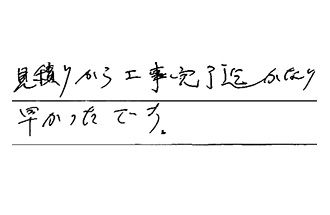 見積りから工事完了迄かなり
早かったです。